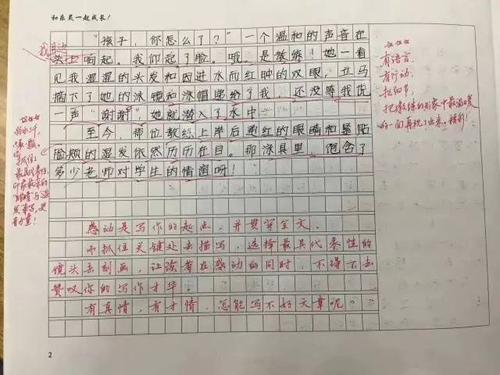 和在灵一起成长!
"孩子,你怎么了?"一个温和的声音在
头上响起。我仰起了脸。哦,是教练!她一看
见我湿湿的头发和因进水而红肿的双眼,立马
摘下了她的泳镜和泳帽递给了我,还没等我说
一声"谢谢",她就潜入了水中
至今,那位教练上岸后通红的眼睛和紧贴
脸颊的湿发依然历历在目。那泳具里,包含了
多少老师对学生的情谊呀!
感动是写作的起点,并贯穿全文。
而抓住关键处去描写,选择最具代表性的
镜头去刻画,让读者在感动的同时,不得不去
赞叹你的写作才华
有真情,有才情,怎能写不好文章呢?
有语言,
有行动,
抓细节,
2